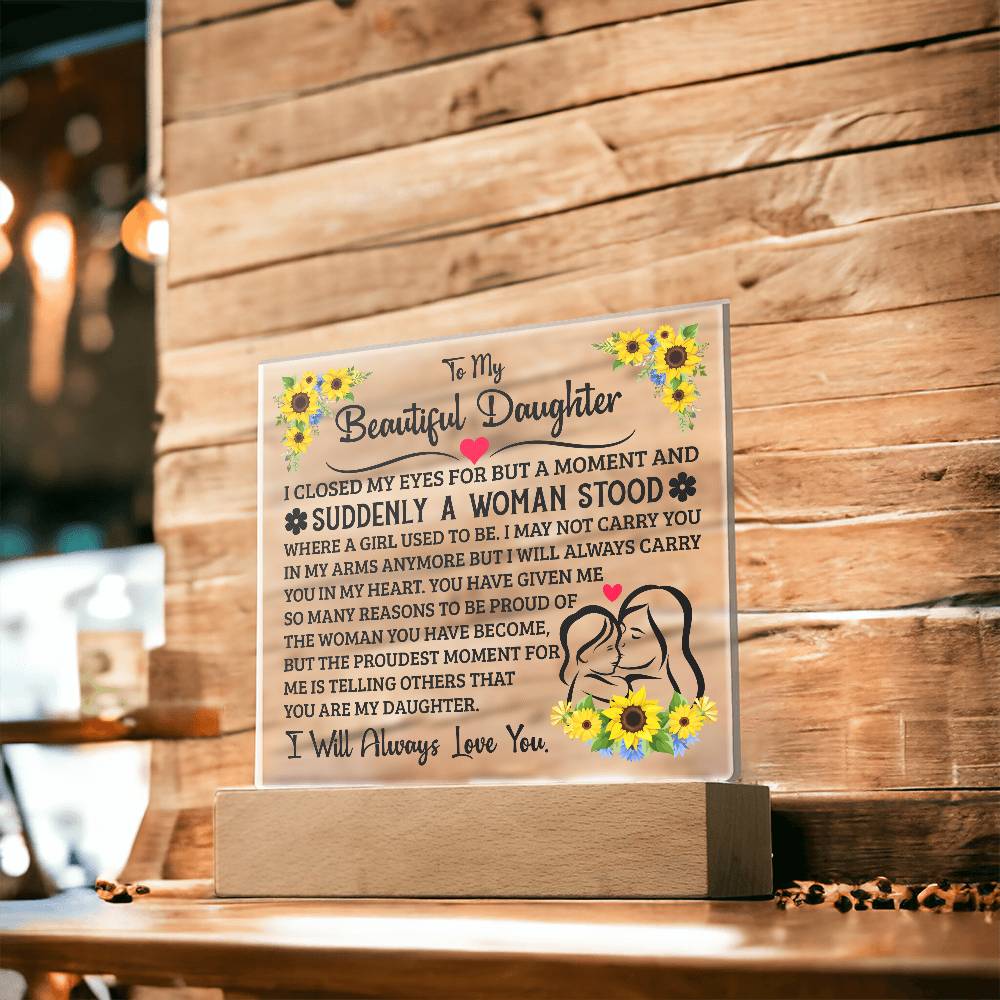 To My
Beautiful Daughter
I CLOSED MY EYES FOR BUT A MOMENT AND
SUDDENLY A WOMAN STOOD
WHERE A GIRL USED TO BE. I MAY NOT CARRY YOU
IN MY ARMS ANYMORE BUT I WILL ALWAYS CARRY
YOU IN MY HEART. YOU HAVE GIVEN ME
SO MANY REASONS TO BE PROUD OF
THE WOMAN YOU HAVE BECOME,
BUT THE PROUDEST MOMENT FOR
ME IS TELLING OTHERS THAT
YOU ARE MY DAUGHTER.
I Will Always Love You.